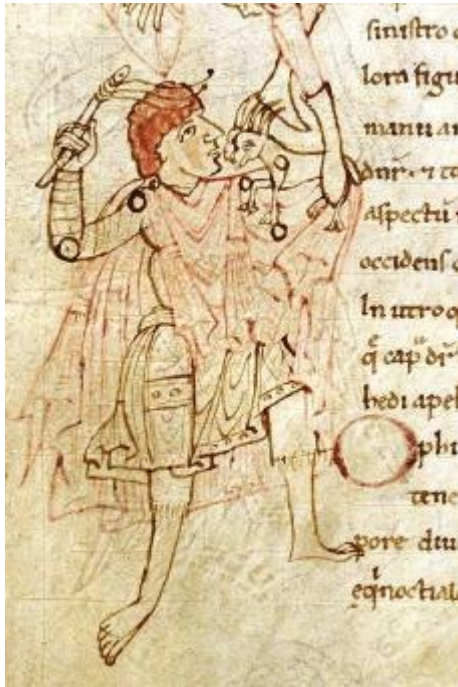 sinistro
lora figu
manu
aspectu
occidens
In utroq
hedi apel
Ophi
tene
pore diu
eqnoctial